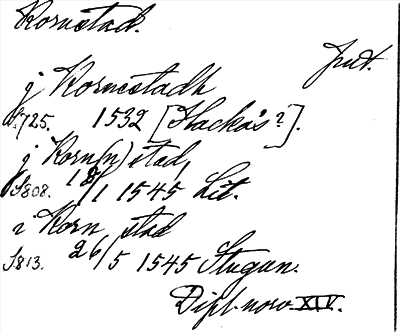 Kornstad.
Jmt.
j Kornestadh
S. 725. 1532 [Hackås?].
j Korn(n)stad,
S. 808. 18/1 1545 Lit.
i Korn stad
S. 813. 26/5 1545 Stugun.
Dipl. norv. XIV.